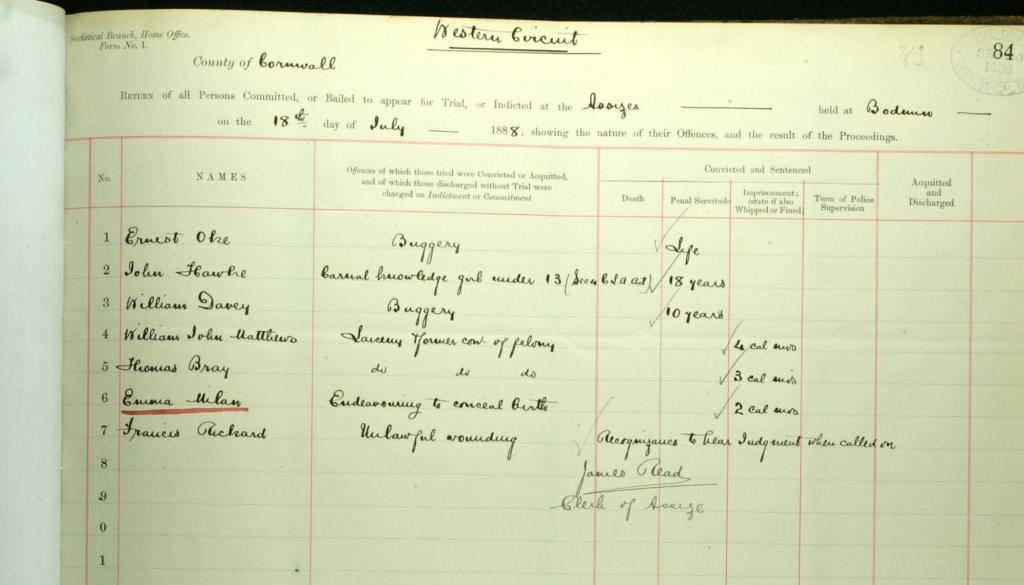 Western Circuit
Statistical Branch, Home Office,
Form No. 1.
83
84
County of Cornwall
RETURN of all Persons Committed, or Bailed to appear for Trial, or Indicted at the Assizes held at Bodmin
on the 18th day of July 1888, showing the nature of their Offences, and the result of the Proceedings.
No. NAMES Offences of which those tried were Convicted or Acquitted, and of which those discharged without Trial were charged on Indictment or Commitment Convicted and Sentenced Acquitted and Discharged
Death Penal Servitude Imprisonment; (state if also Whipped or Fined) Term of Police Supervision
1 Ernest Oke Buggery Life
2 John Hawke Carnal knowledge girl under 13 (Sec 4 C.L.A. act) 18 years
3 William Davey Buggery 10 years
4 William John Matthews Larceny & former conv of felony 4 cal mos
5 Thomas Bray do do do 3 cal mos
6 Emma Milan Endeavouring to conceal birth 2 cal mos
7 Francis Rickard Unlawful wounding Recognizances to hear Judgment when called on
8 James Read
9 Clerk of Assize
0
1